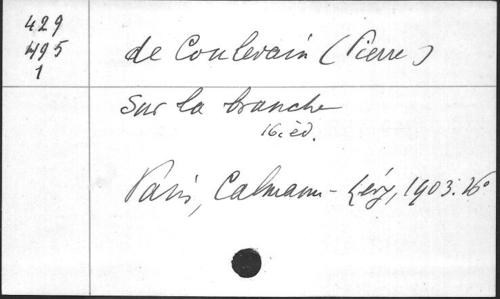 429
495
1
de Coulevain (Pierre)
Sur la branche
16. éd.
Paris, Calmann-Lévy, 1903. 16°